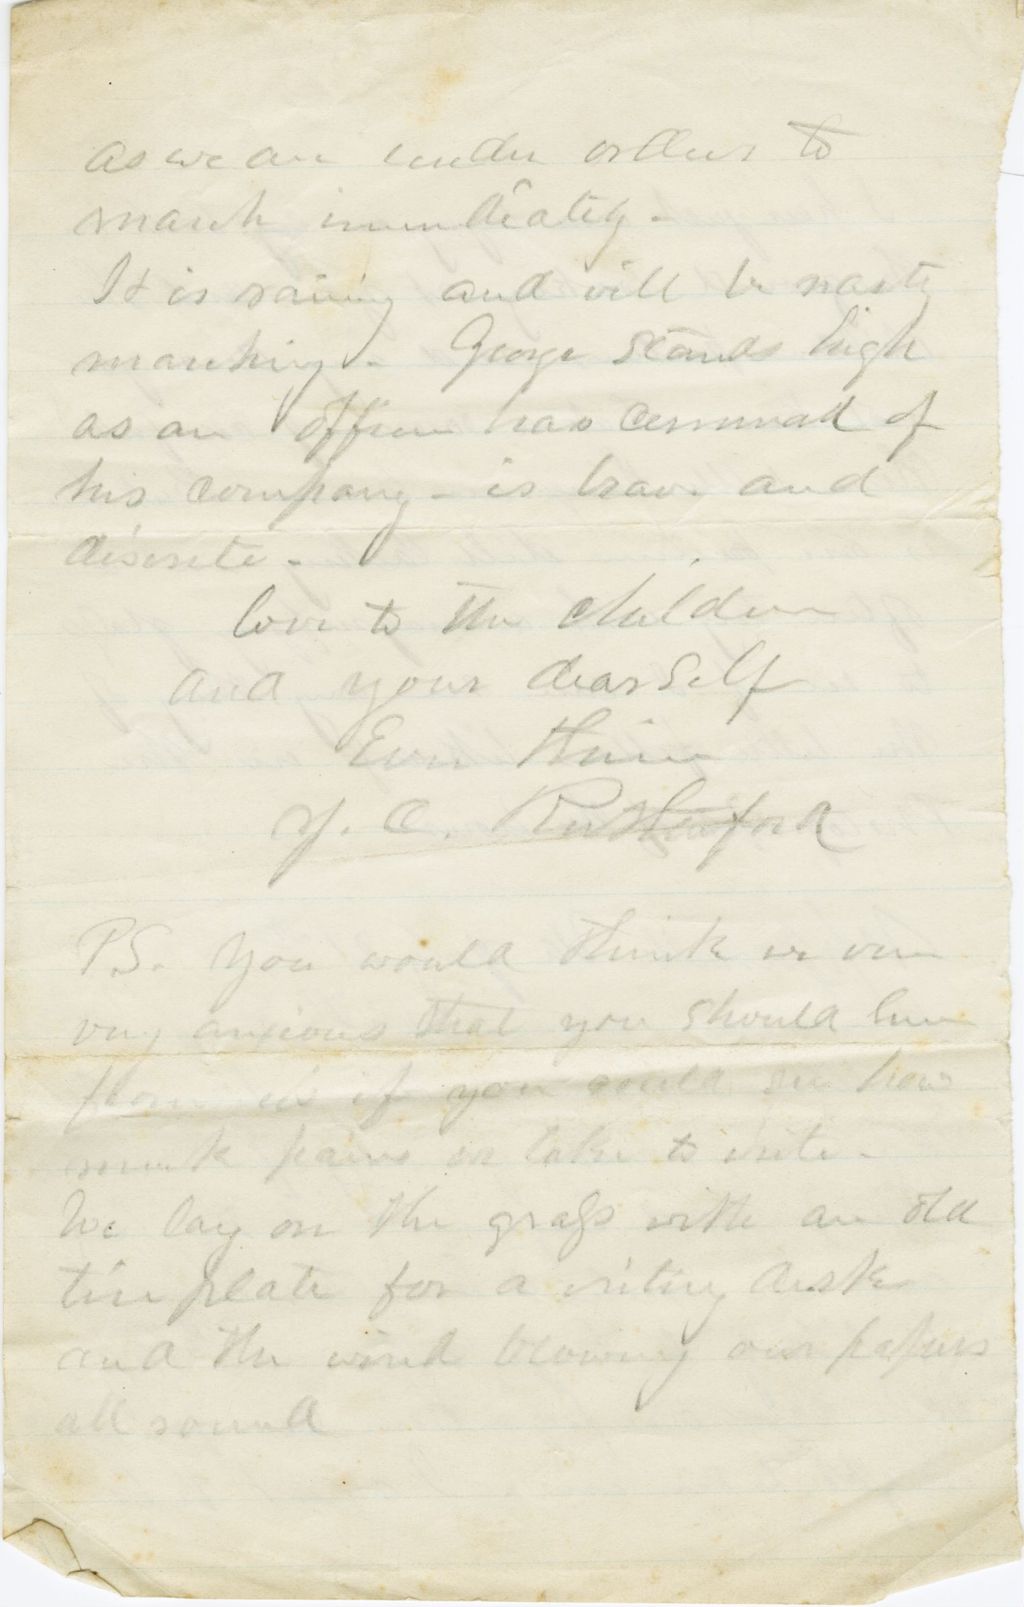 as we are under orders to
march immediately -
It is raining and will be nasty
marching - George stands high
as an officer has command of
his company - is brave and
discrete -
Love to the children
and your dear self
Ever Thine
J. C. Rutherford
P.S. You would think we were
very anxious that you should hear
from us if you could see how
much pains we take to write -
We lay on the grass with an old
tin plate for a writing desk
and the wind blowing our papers
all round